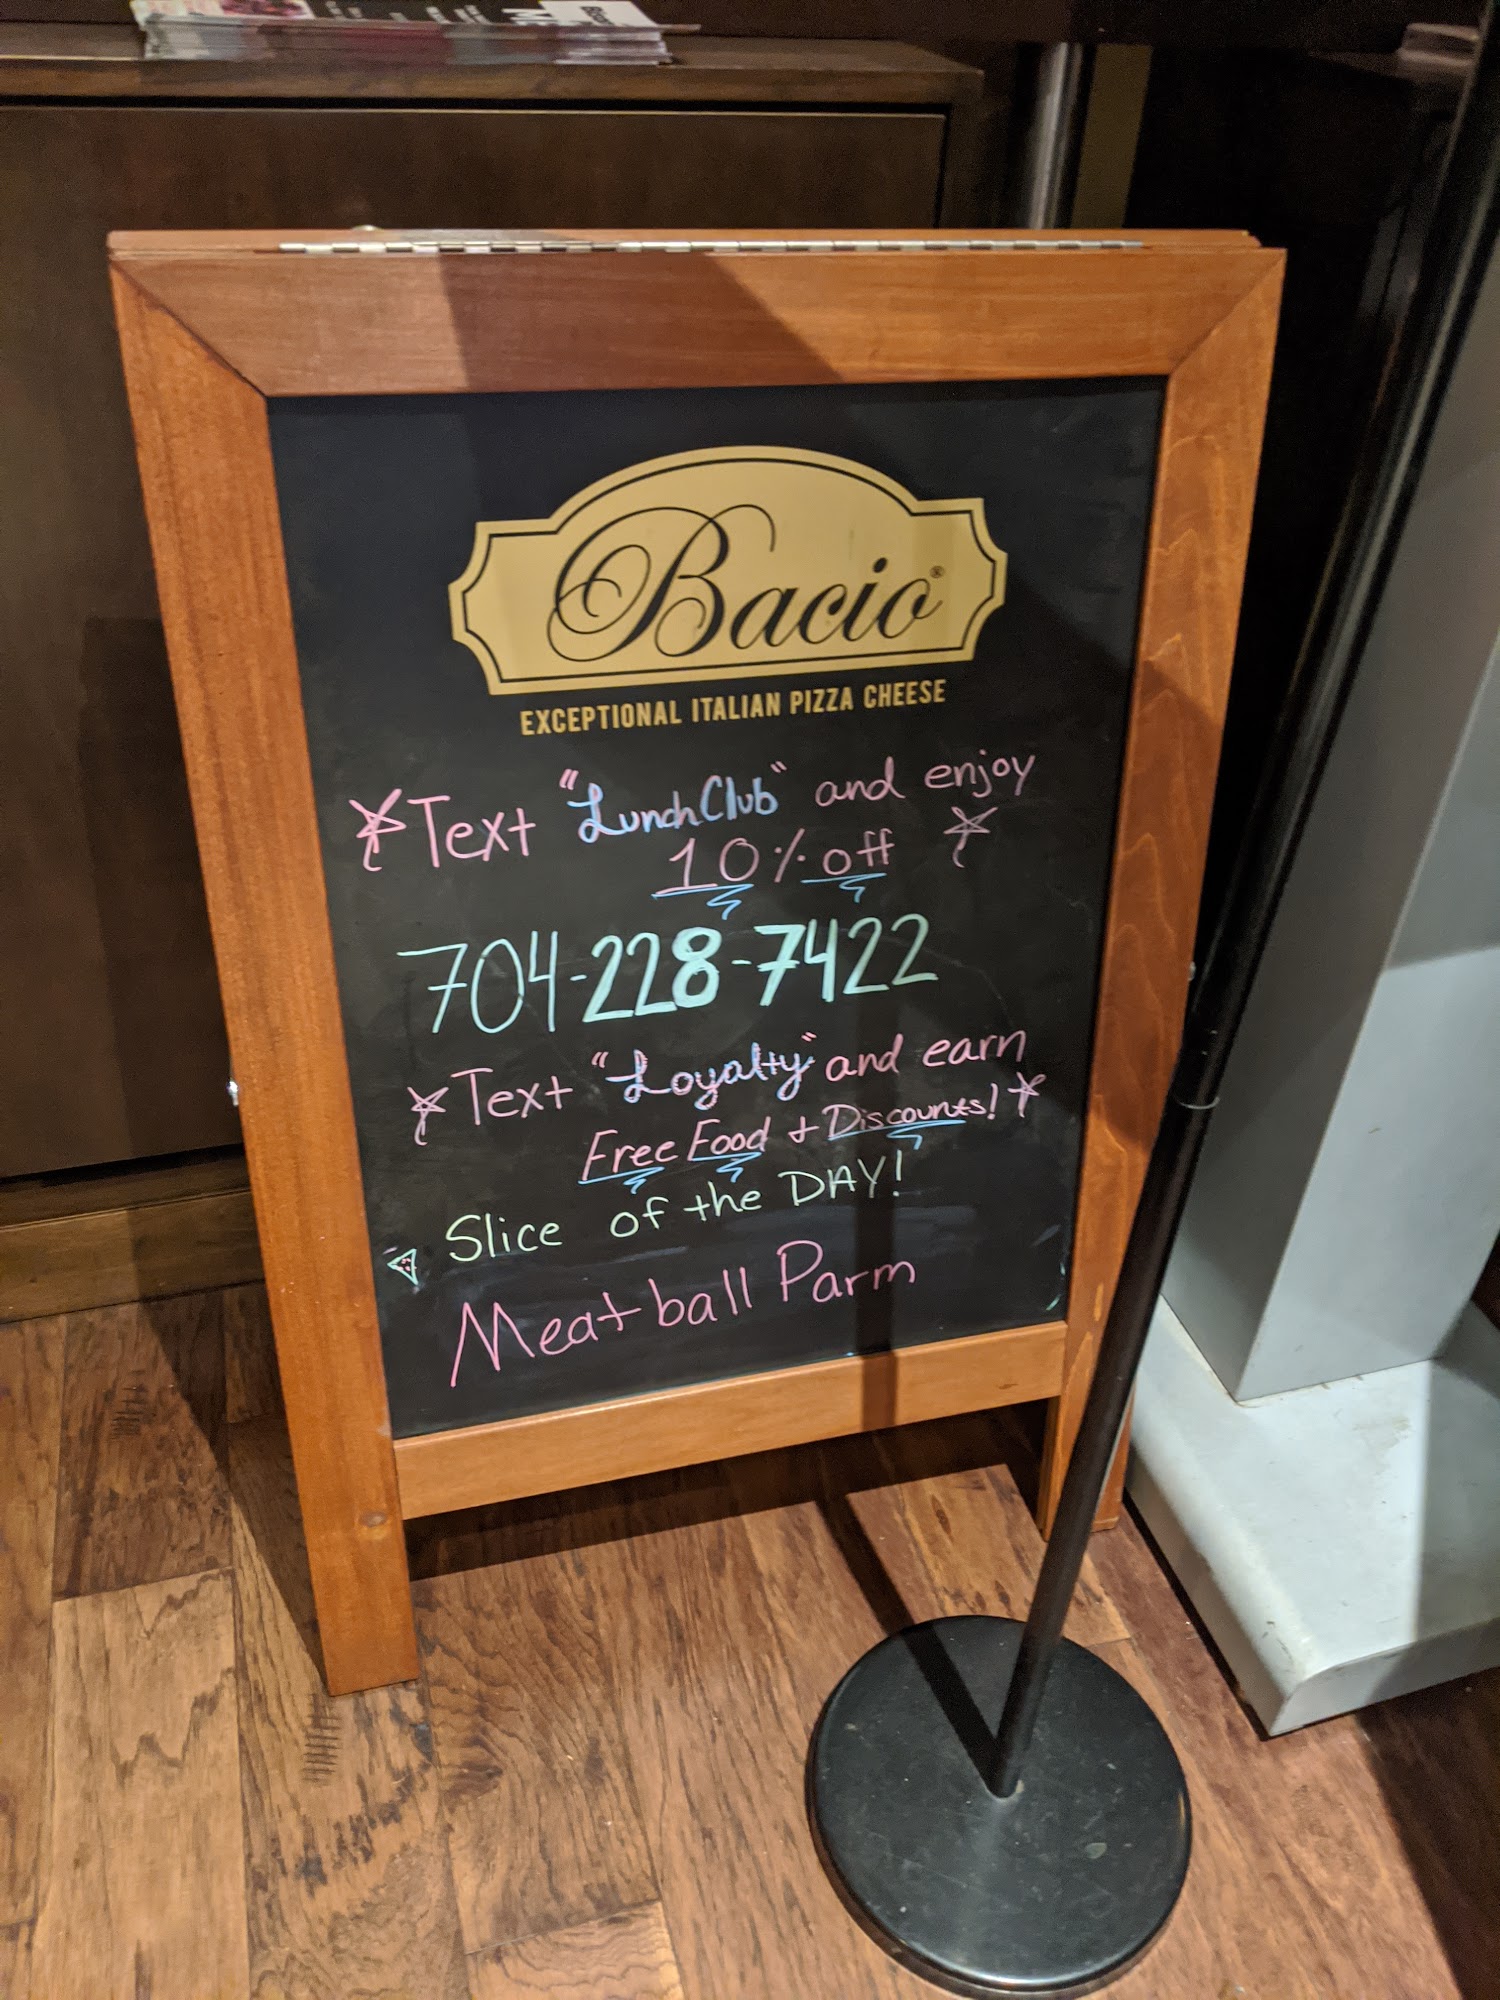 Bacio®
EXCEPTIONAL ITALIAN PIZZA CHEESE
Text "Lunch Club" and enjoy
10% off
704-228-7422
Text "Loyalty" and earn
Free Food + Discounts!
Slice of the DAY!
Meatball Parm